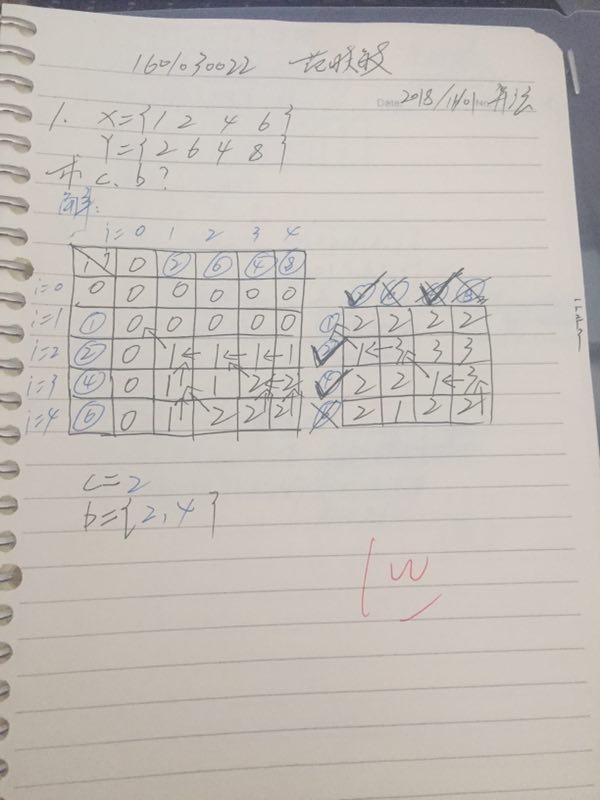 1601030022
Date: 2018/11/01 No 算法
1. X={1 2 4 6}
Y={2 6 4 8}
求 c、b?
解:
j= 0 1 2 3 4
0 2 6 4 8
i=0 0 0 0 0 0 0
i=1 1 0 0 0 0 0
i=2 2 0 1 1 1 1
i=3 4 0 1 1 2 2
i=4 6 0 1 2 2 2
1 2 2 2 2
1 3 3 3
2 2 1 3
2 1 2 2
c=2
b={2,4}